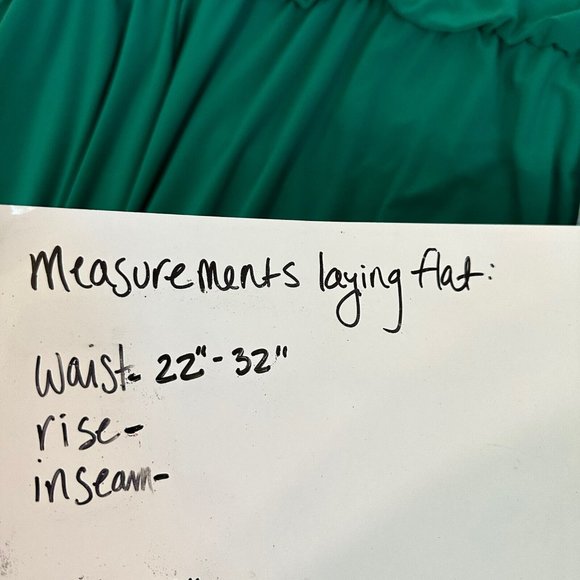 Measurements laying flat:
Waist- 22"-32"
rise-
inseam-